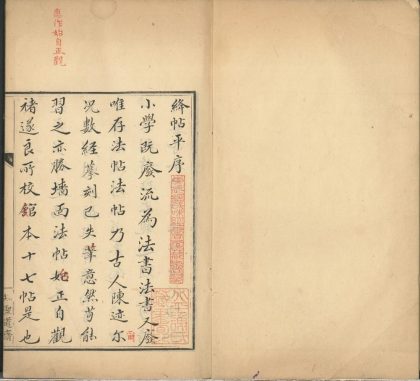 絳帖平序
小學既廢流為法書法書又廢
唯存法帖法帖乃古人陳迹尔
况數經摹刻已失筆意然苟能
習之亦勝墻面法帖始正自觀
褚遂良所校館本十七帖是也
應作始自正觀